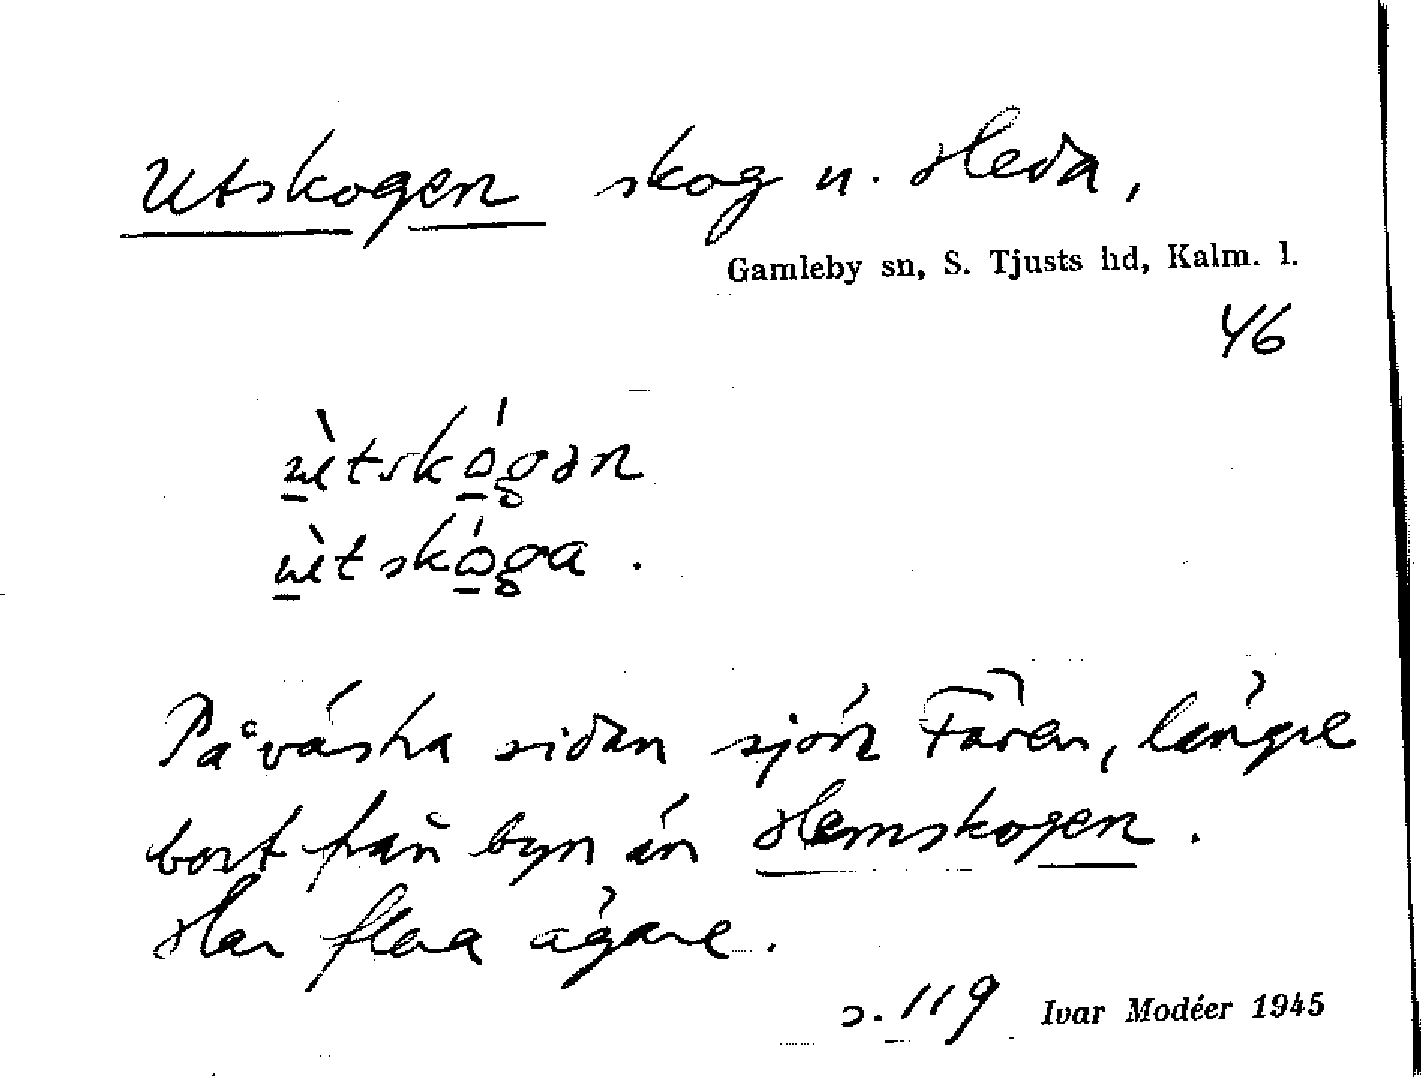 Utskogen skog u. Heda,
Gamleby sn, S. Tjusts hd, Kalm. l.
46
ùtskógən
ùtskóga.
På västra sidan sjön Fären, längre
bort från byn än Hemskogen.
Har flera ägare.
s. 119 Ivar Modéer 1945